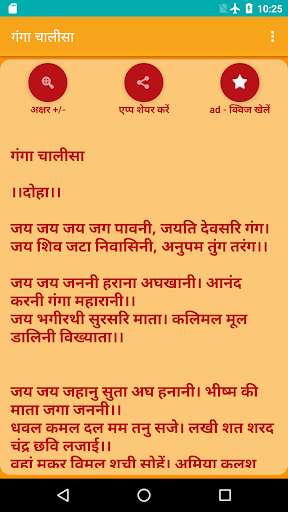 10:25
गंगा चालीसा
अक्षर +/-
एप्प शेयर करें
ad - क्विज खेलें
गंगा चालीसा
।।दोहा।।
जय जय जय जग पावनी, जयति देवसरि गंग।
जय शिव जटा निवासिनी, अनुपम तुंग तरंग।।
जय जय जननी हराना अघखानी। आनंद
करनी गंगा महारानी।।
जय भगीरथी सुरसरि माता। कलिमल मूल
डालिनी विख्याता।।
जय जय जहानु सुता अघ हनानी। भीष्म की
माता जगा जननी।।
धवल कमल दल मम तनु सजे। लखी शत शरद
चंद्र छवि लजाई।।
वहां मकर विमल शुची सोहें। अमिया कलश